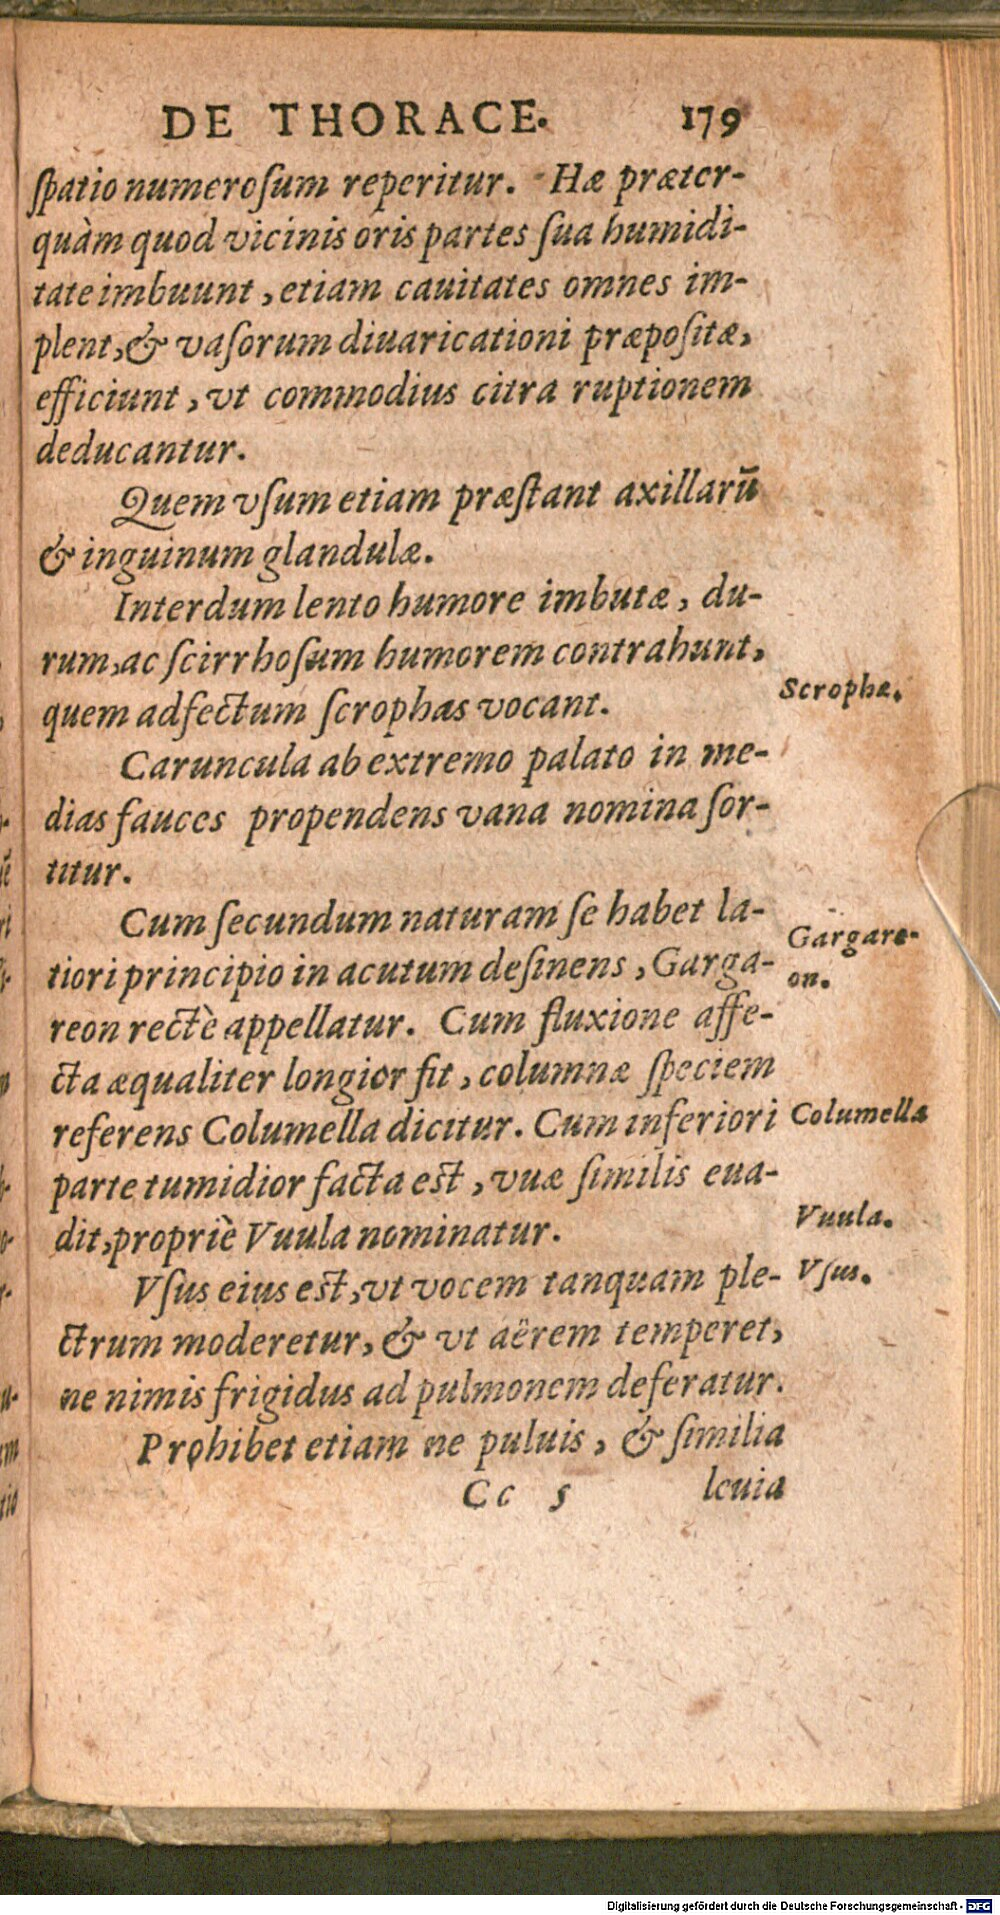 DE THORACE. 179
ſpatio numeroſum reperitur. Hæ præter-
quàm quod vicinis oris partes ſua humidi-
tate imbuunt, etiam cauitates omnes im-
plent, & vaſorum diuaricationi præpoſitæ,
efficiunt, vt commodius citra ruptionem
deducantur.
Quem vſum etiam præſtant axillarū
& inguinum glandulæ.
Interdum lento humore imbutæ, du-
rum, ac ſcirrhoſum humorem contrahunt,
quem adfectum ſcrophas vocant.
Scrophæ.
Caruncula ab extremo palato in me-
dias fauces propendens vana nomina ſor-
titur.
Cum ſecundum naturam ſe habet la-
tiori principio in acutum deſinens, Garga-
reon rectè appellatur. Cum fluxione affe-
Gargare-
on.
cta æqualiter longior fit, columnæ ſpeciem
referens Columella dicitur. Cum inferiori
Columella
parte tumidior facta est, vuæ ſimilis eua-
dit, propriè Vuula nominatur.
Vuula.
Vſus eius est, vt vocem tanquam ple-
Vſus.
ctrum moderetur, & vt aërem temperet,
ne nimis frigidus ad pulmonem deferatur.
Prohibet etiam ne puluis, & ſimilia
Cc 5 leuia
Digitalisierung gefördert durch die Deutsche Forschungsgemeinschaft - DFG